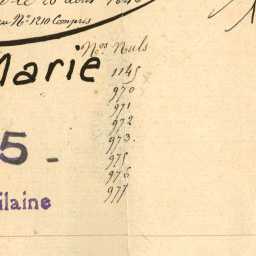 au Nº 1210 Compris
Marie
Nos Nuls
1145
970
971
972
973.
975
976
977
5 -
ilaine